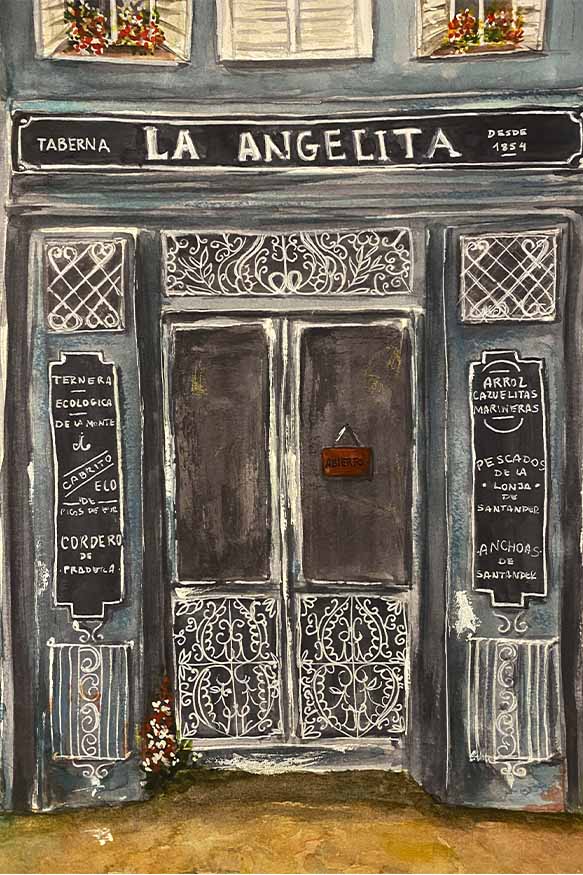 TABERNA
LA ANGELITA
DESDE
1854
TERNERA
ECOLOGICA
DE LA MONTE
CABRITO
ECO
DE
CORDERO
DE
ABIERTO
ARROZ
CAZUELITAS
MARINERAS
PESCADOS
DE LA
LONJA
DE
SANTANDER
ANCHOAS
DE
SANTANDER